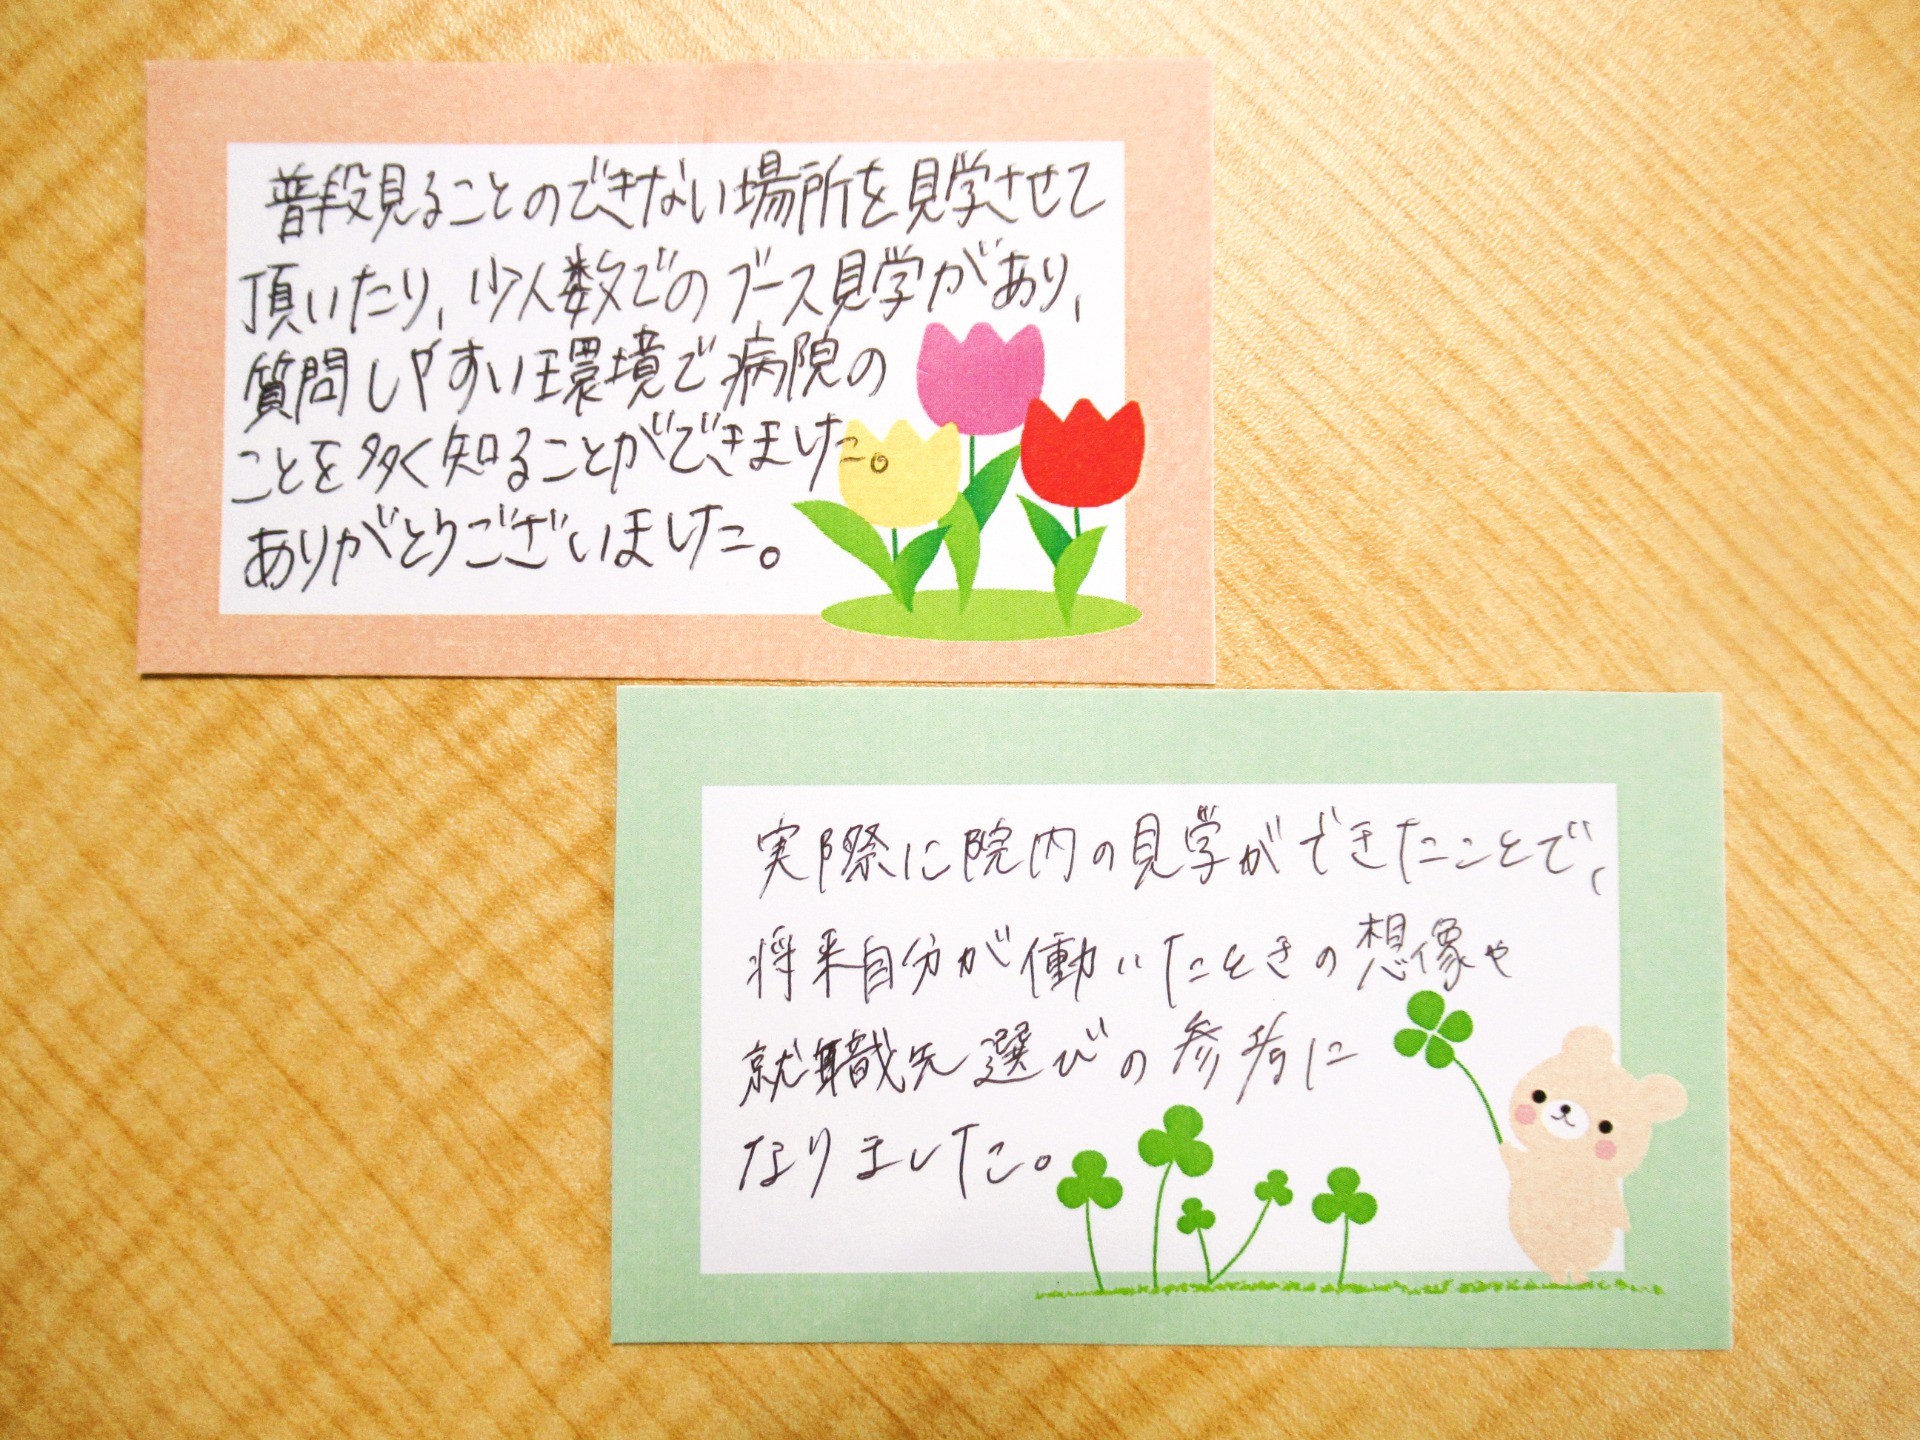 普段見ることのできない場所を見学させて
頂いたり、少人数でのブース見学があり、
質問しやすい環境で病院の
ことを多く知ることができました。
ありがとうございました。
実際に院内の見学ができたことで、
将来自分が働いたときの想像や
就職先選びの参考に
なりました。